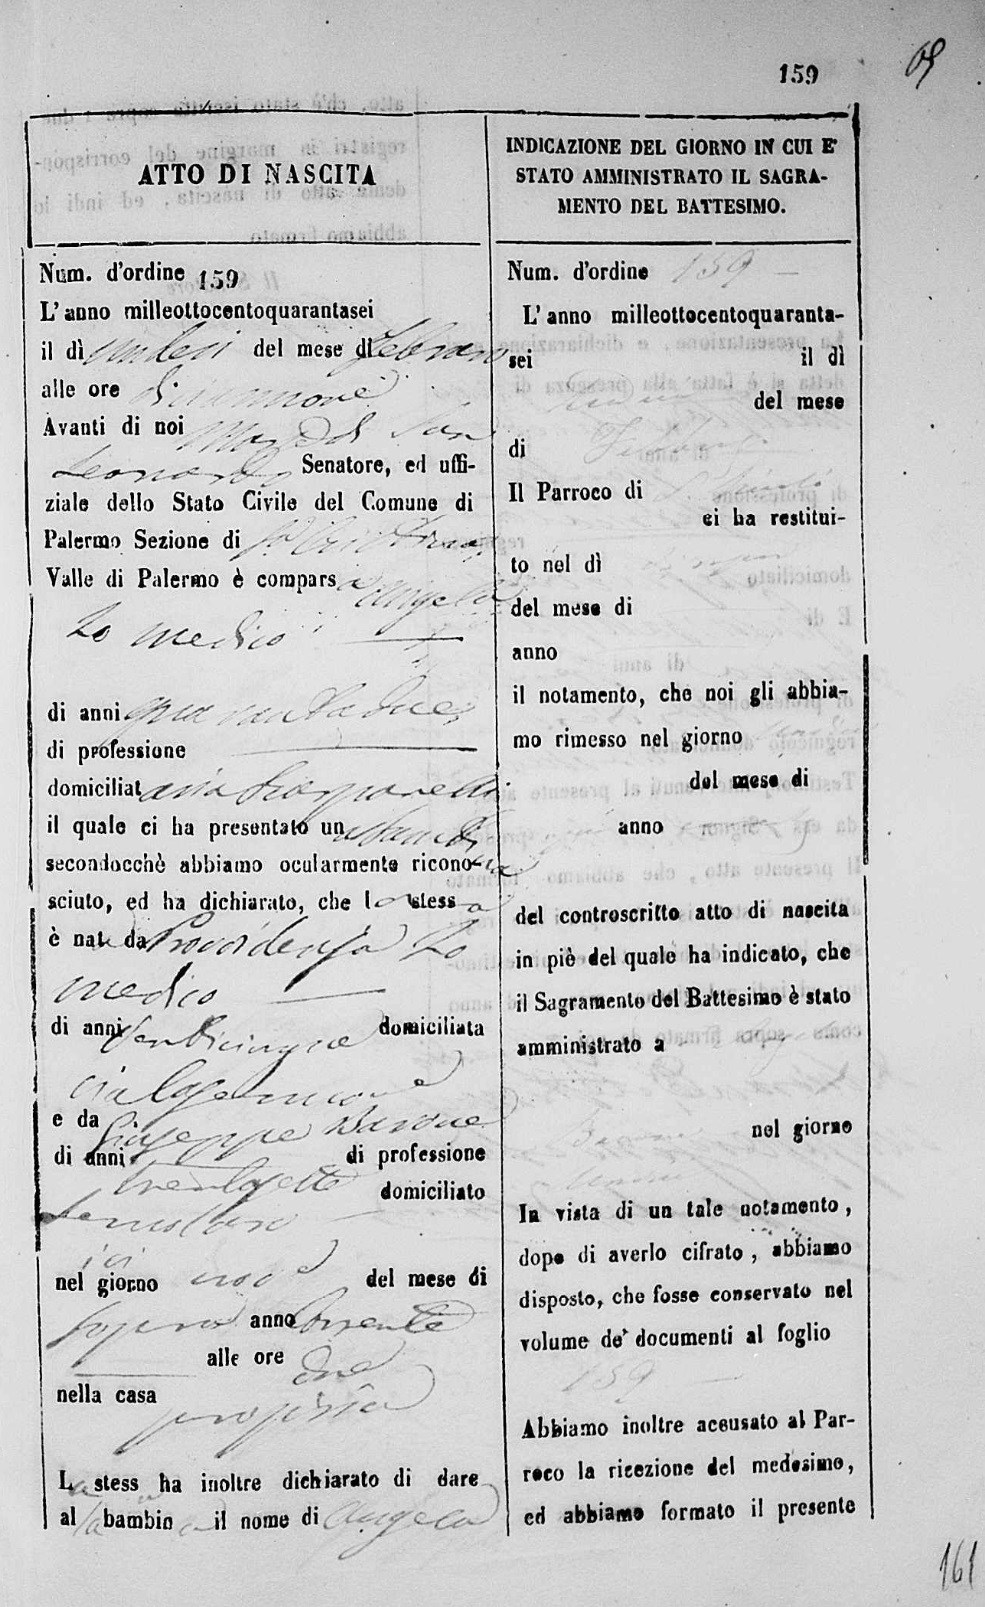 159
ATTO DI NASCITA
Num. d'ordine 159
L'anno milleottocentoquarantasei
il dì undeci del mese di Febraro
alle ore diecinnove
Avanti di noi San
Leonardo Senatore, ed uffi-
ziale dello Stato Civile del Comune di
Palermo Sezione di
Valle di Palermo è compars a Angela
Lo Medico
di anni quarantadue
di professione
domiciliat a via
il quale ci ha presentato una
secondocchè abbiamo ocularmente ricono-
sciuto, ed ha dichiarato, che la stessa
è nata da Providenza Lo
Medico
di anni venticinque domiciliata
via
e da Giuseppe Barone
di anni di professione
trentasette domiciliato
ivi
nel giorno nove del mese di
sopra anno corrente
alle ore due
nella casa
propria
La stess ha inoltre dichiarato di dare
alla bambina il nome di Angela
INDICAZIONE DEL GIORNO IN CUI E'
STATO AMMINISTRATO IL SAGRA-
MENTO DEL BATTESIMO.
Num. d'ordine 159
L'anno milleottocentoquaranta-
sei il dì
del mese
di Febraro
Il Parroco di
ci ha restitui-
to nel dì
del mese di
anno
il notamento, che noi gli abbia-
mo rimesso nel giorno
del mese di
anno
del controscritto atto di nascita
in piè del quale ha indicato, che
il Sagramento del Battesimo è stato
amministrato a
nel giorno
In vista di un tale notamento,
dopo di averlo cifrato, abbiamo
disposto, che fosse conservato nel
volume de' documenti al foglio
159
Abbiamo inoltre accusato al Par-
roco la ricezione del medesimo,
ed abbiamo formato il presente
161